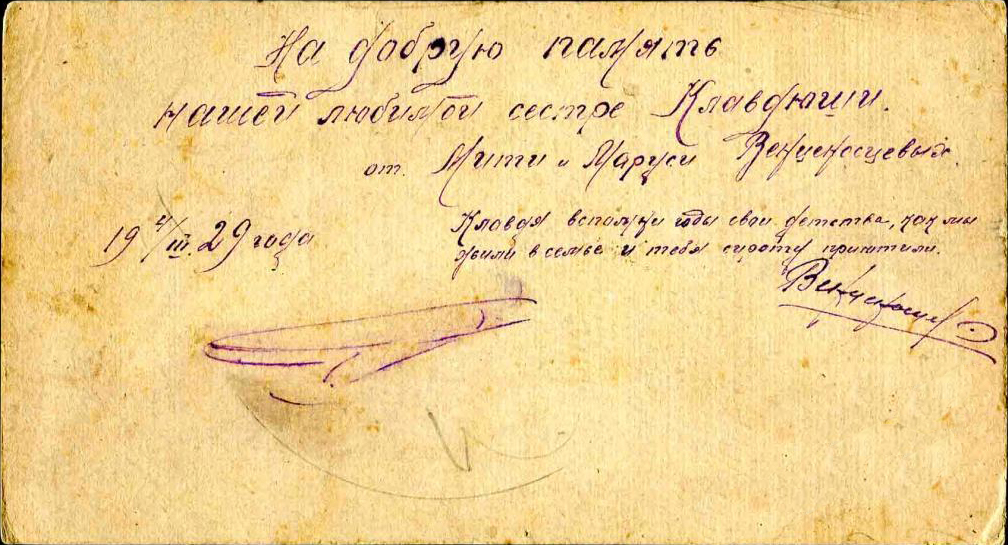 На добрую память
нашей любимой сестре Клавдюши.
от. Мити и Маруси Венценосцевых.
19 4/III. 29 года
Клавдя вспомни годы свои детства, как мы
жили в семье и тебя сироту приютили.
Венценосцев